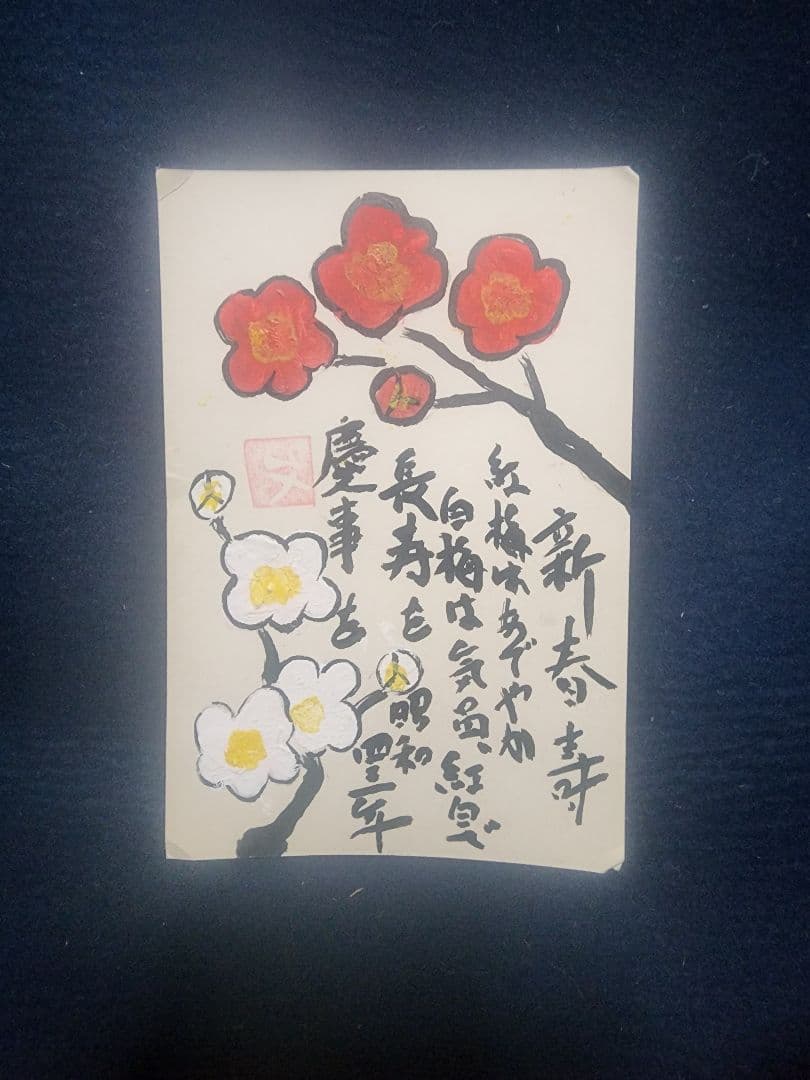 新春寿
紅梅はあでやか
白梅は気品、紅白で
長寿を
慶事を
昭和
四三年